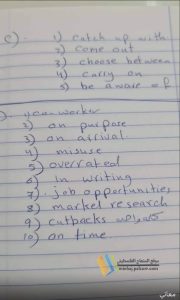 C).
1) catch up with
2) come out
3) choose between
4) carry on
5) be aware of
1) co-worker
2) on purpose
3) on arrival
4) misuse
5) overrated
6) in writing
7) job opportunities
8) market research
9) cutbacks
10) on time
موقع المنهاج الفلسطيني
معاني